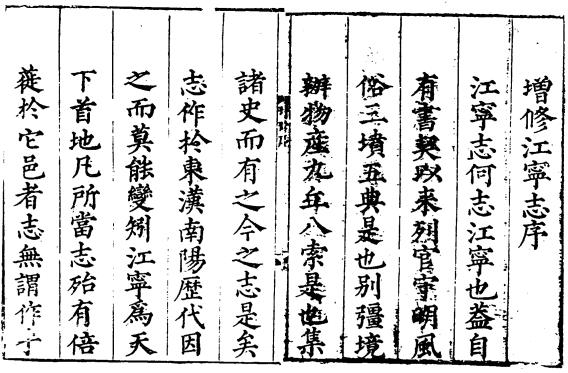 增修江寧志序
江寧志何志江寧也葢自
有書契以來列官守明風
俗三墳五典是也别疆境
辦物產九年八索是也集
諸史而有之今之志是矣
志作於東漢南陽歴代因
之而莫能變矧江寧爲天
下首地凡所當志殆有倍
蓰於它邑者志無謂作于